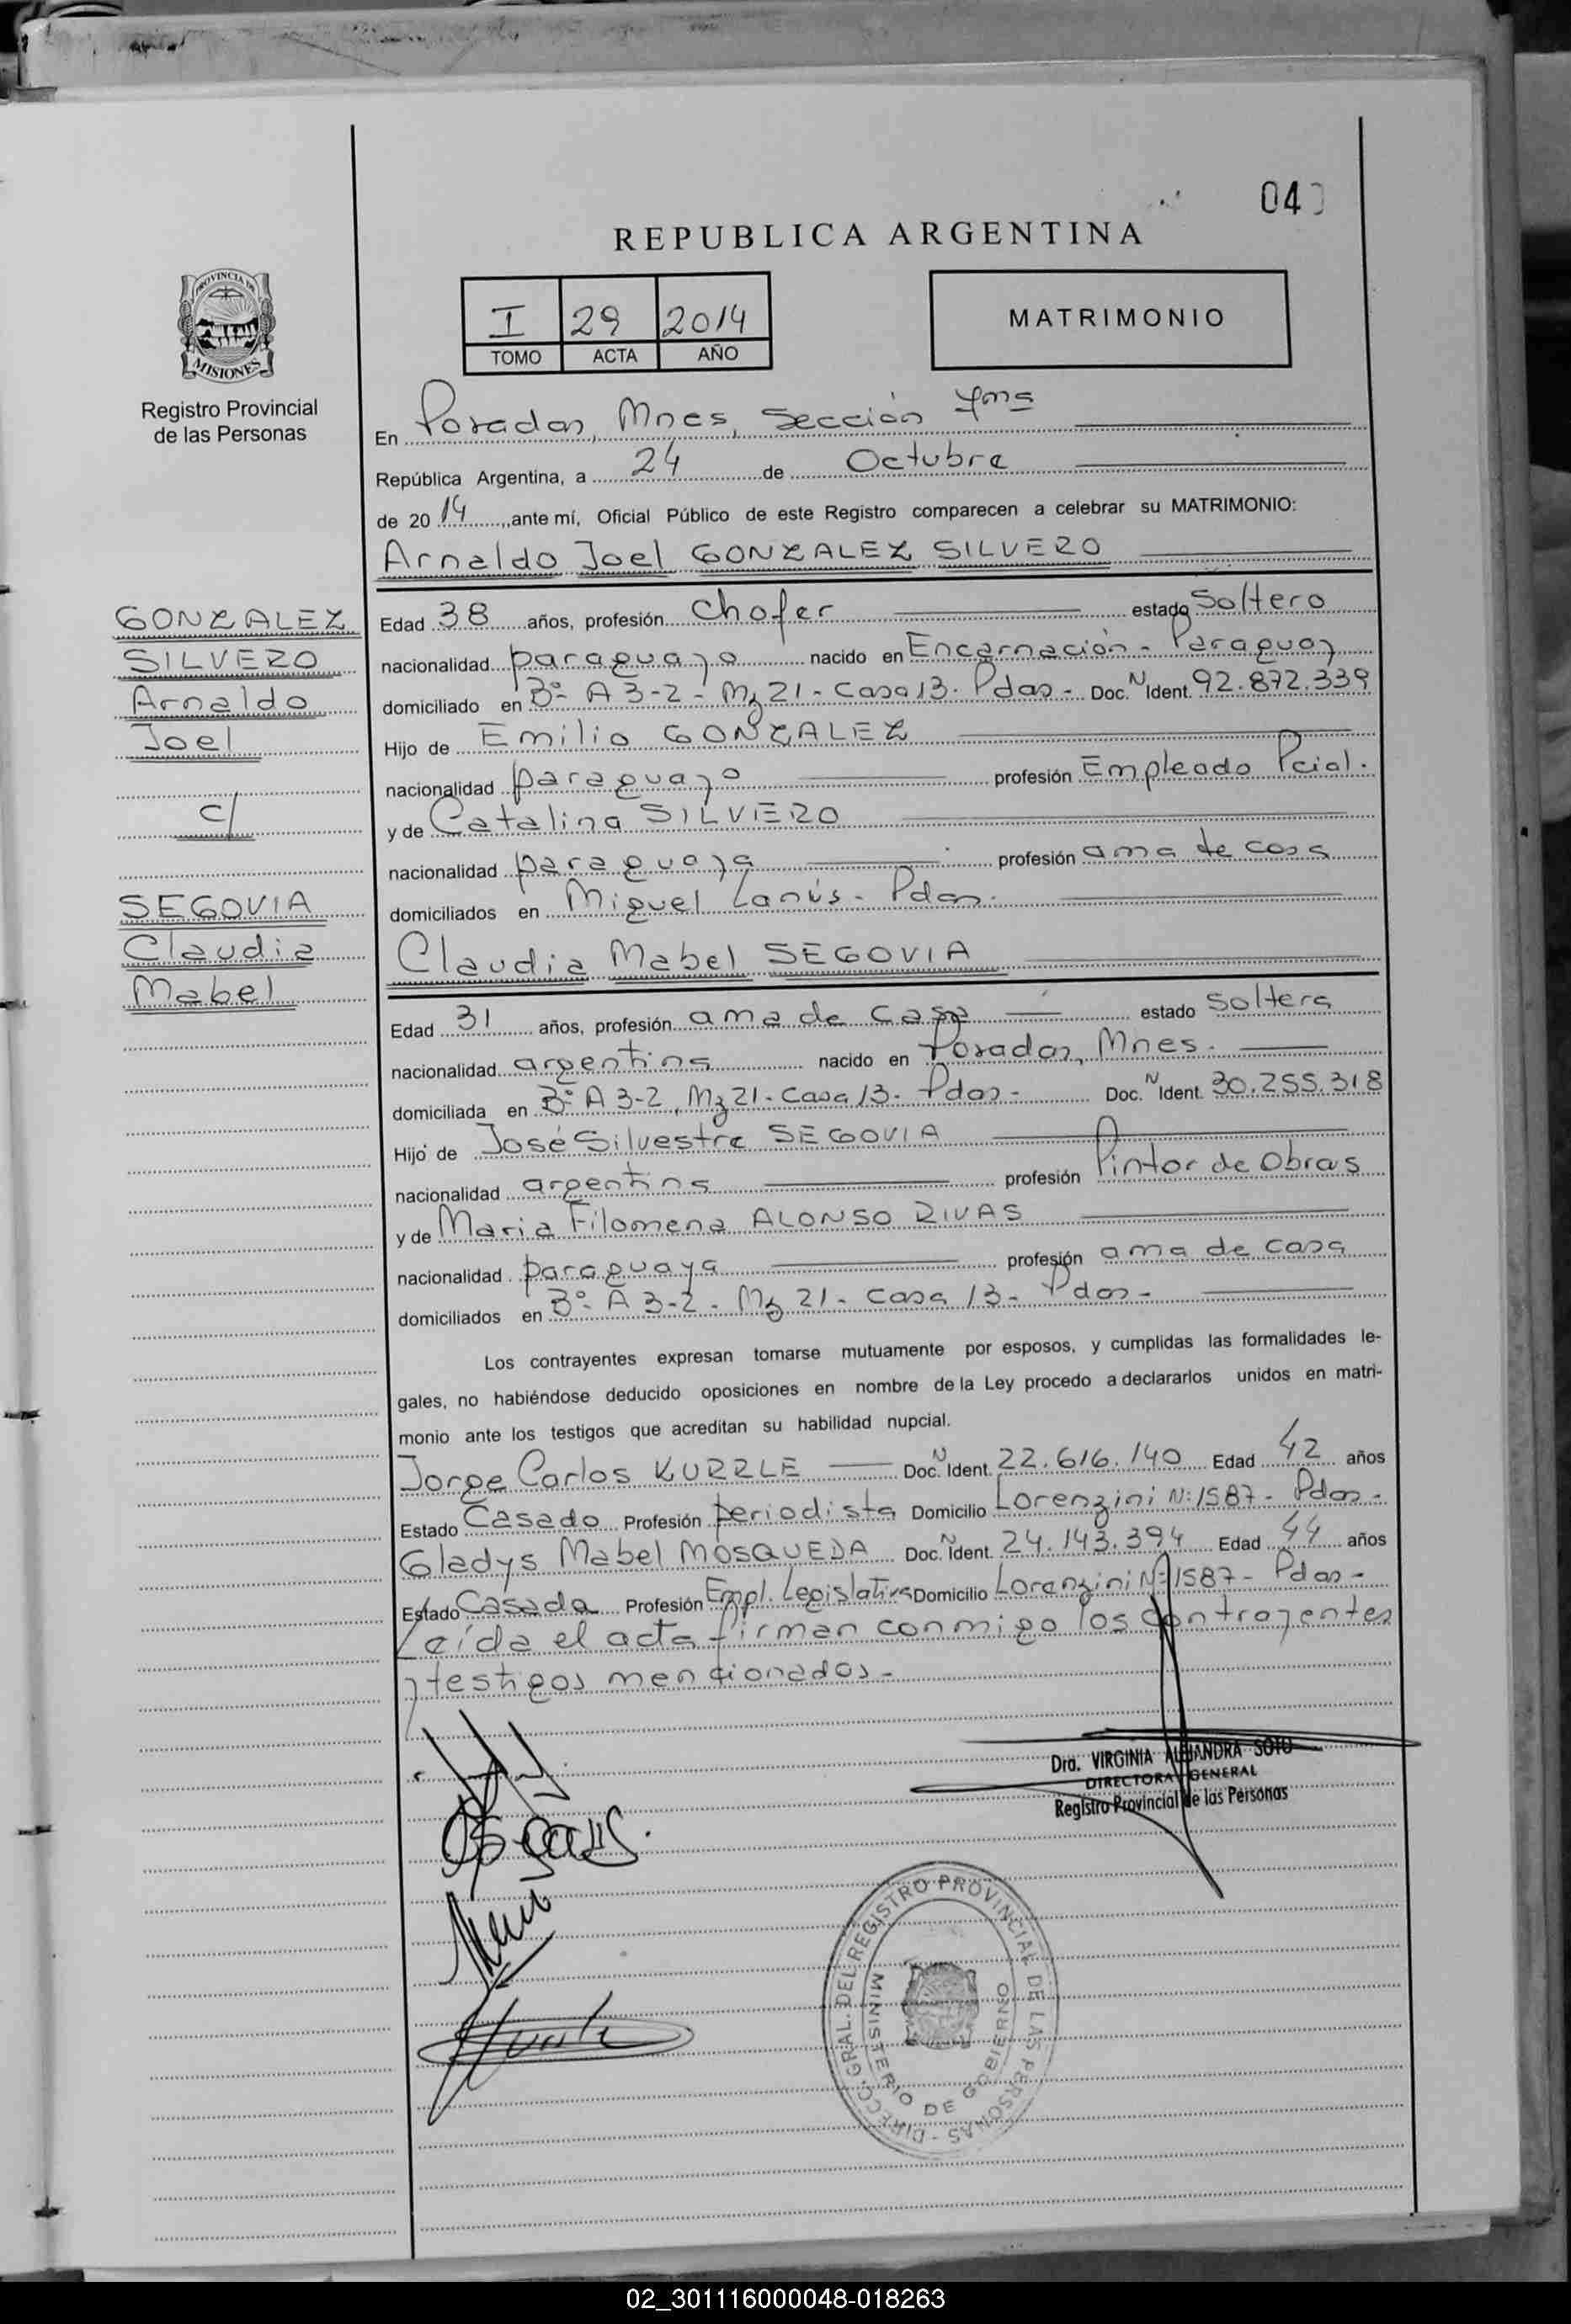 04
REPUBLICA ARGENTINA
PROVINCIA DE
MISIONES
Registro Provincial
de las Personas
I 29 2014
TOMO ACTA AÑO
MATRIMONIO
En Posadas, Mnes, Sección 4ms
República Argentina, a 24 de Octubre
de 2014, ante mí, Oficial Público de este Registro comparecen a celebrar su MATRIMONIO:
Arnaldo Joel GONZALEZ SILVERO
GONZALEZ
SILVERO
Arnaldo
Joel
c/
SEGOVIA
Claudia
Mabel
Edad 38 años, profesión Chofer estado Soltero
nacionalidad paraguayo nacido en Encarnación - Paraguay
domiciliado en Bº A 3-2 - Mz 21 - Casa 13 - Pdas - Doc. N Ident. 92.872.339
Hijo de Emilio GONZALEZ
nacionalidad paraguayo profesión Empleado Pcial.
y de Catalina SILVERO
nacionalidad paraguaya profesión ama de casa
domiciliados en Miguel Lanús - Pdas.
Claudia Mabel SEGOVIA
Edad 31 años, profesión ama de casa estado Soltera
nacionalidad argentina nacido en Posadas, Mnes.
domiciliada en Bº A 3-2, Mz 21 - Casa 13 - Pdas - Doc. N Ident. 30.255.318
Hijo de José Silvestre SEGOVIA
nacionalidad argentina profesión Pintor de Obras
y de Maria Filomena ALONSO RIVAS
nacionalidad paraguaya profesión ama de casa
domiciliados en Bº A 3-2 - Mz 21 - Casa 13 - Pdas -
Los contrayentes expresan tomarse mutuamente por esposos, y cumplidas las formalidades le-
gales, no habiéndose deducido oposiciones en nombre de la Ley procedo a declararlos unidos en matri-
monio ante los testigos que acreditan su habilidad nupcial.
Jorge Carlos KURRLE Doc. N Ident. 22.616.140 Edad 42 años
Estado Casado Profesión periodista Domicilio Lorenzini Nº 1587 - Pdas -
Gladys Mabel MOSQUEDA Doc. N Ident. 24.143.394 Edad 44 años
Estado Casada Profesión Empl. Legislativa Domicilio Lorenzini Nº 1587 - Pdas -
Leída el acta firman conmigo los contrayentes
y testigos mencionados -
Dra. VIRGINIA ALEJANDRA SOTO
DIRECTORA GENERAL
Registro Provincial de las Personas
DIRECC. GRAL. DEL REGISTRO PROVINCIAL DE LAS PERSONAS -
MINISTERIO DE GOBIERNO
02_301116000048-018263